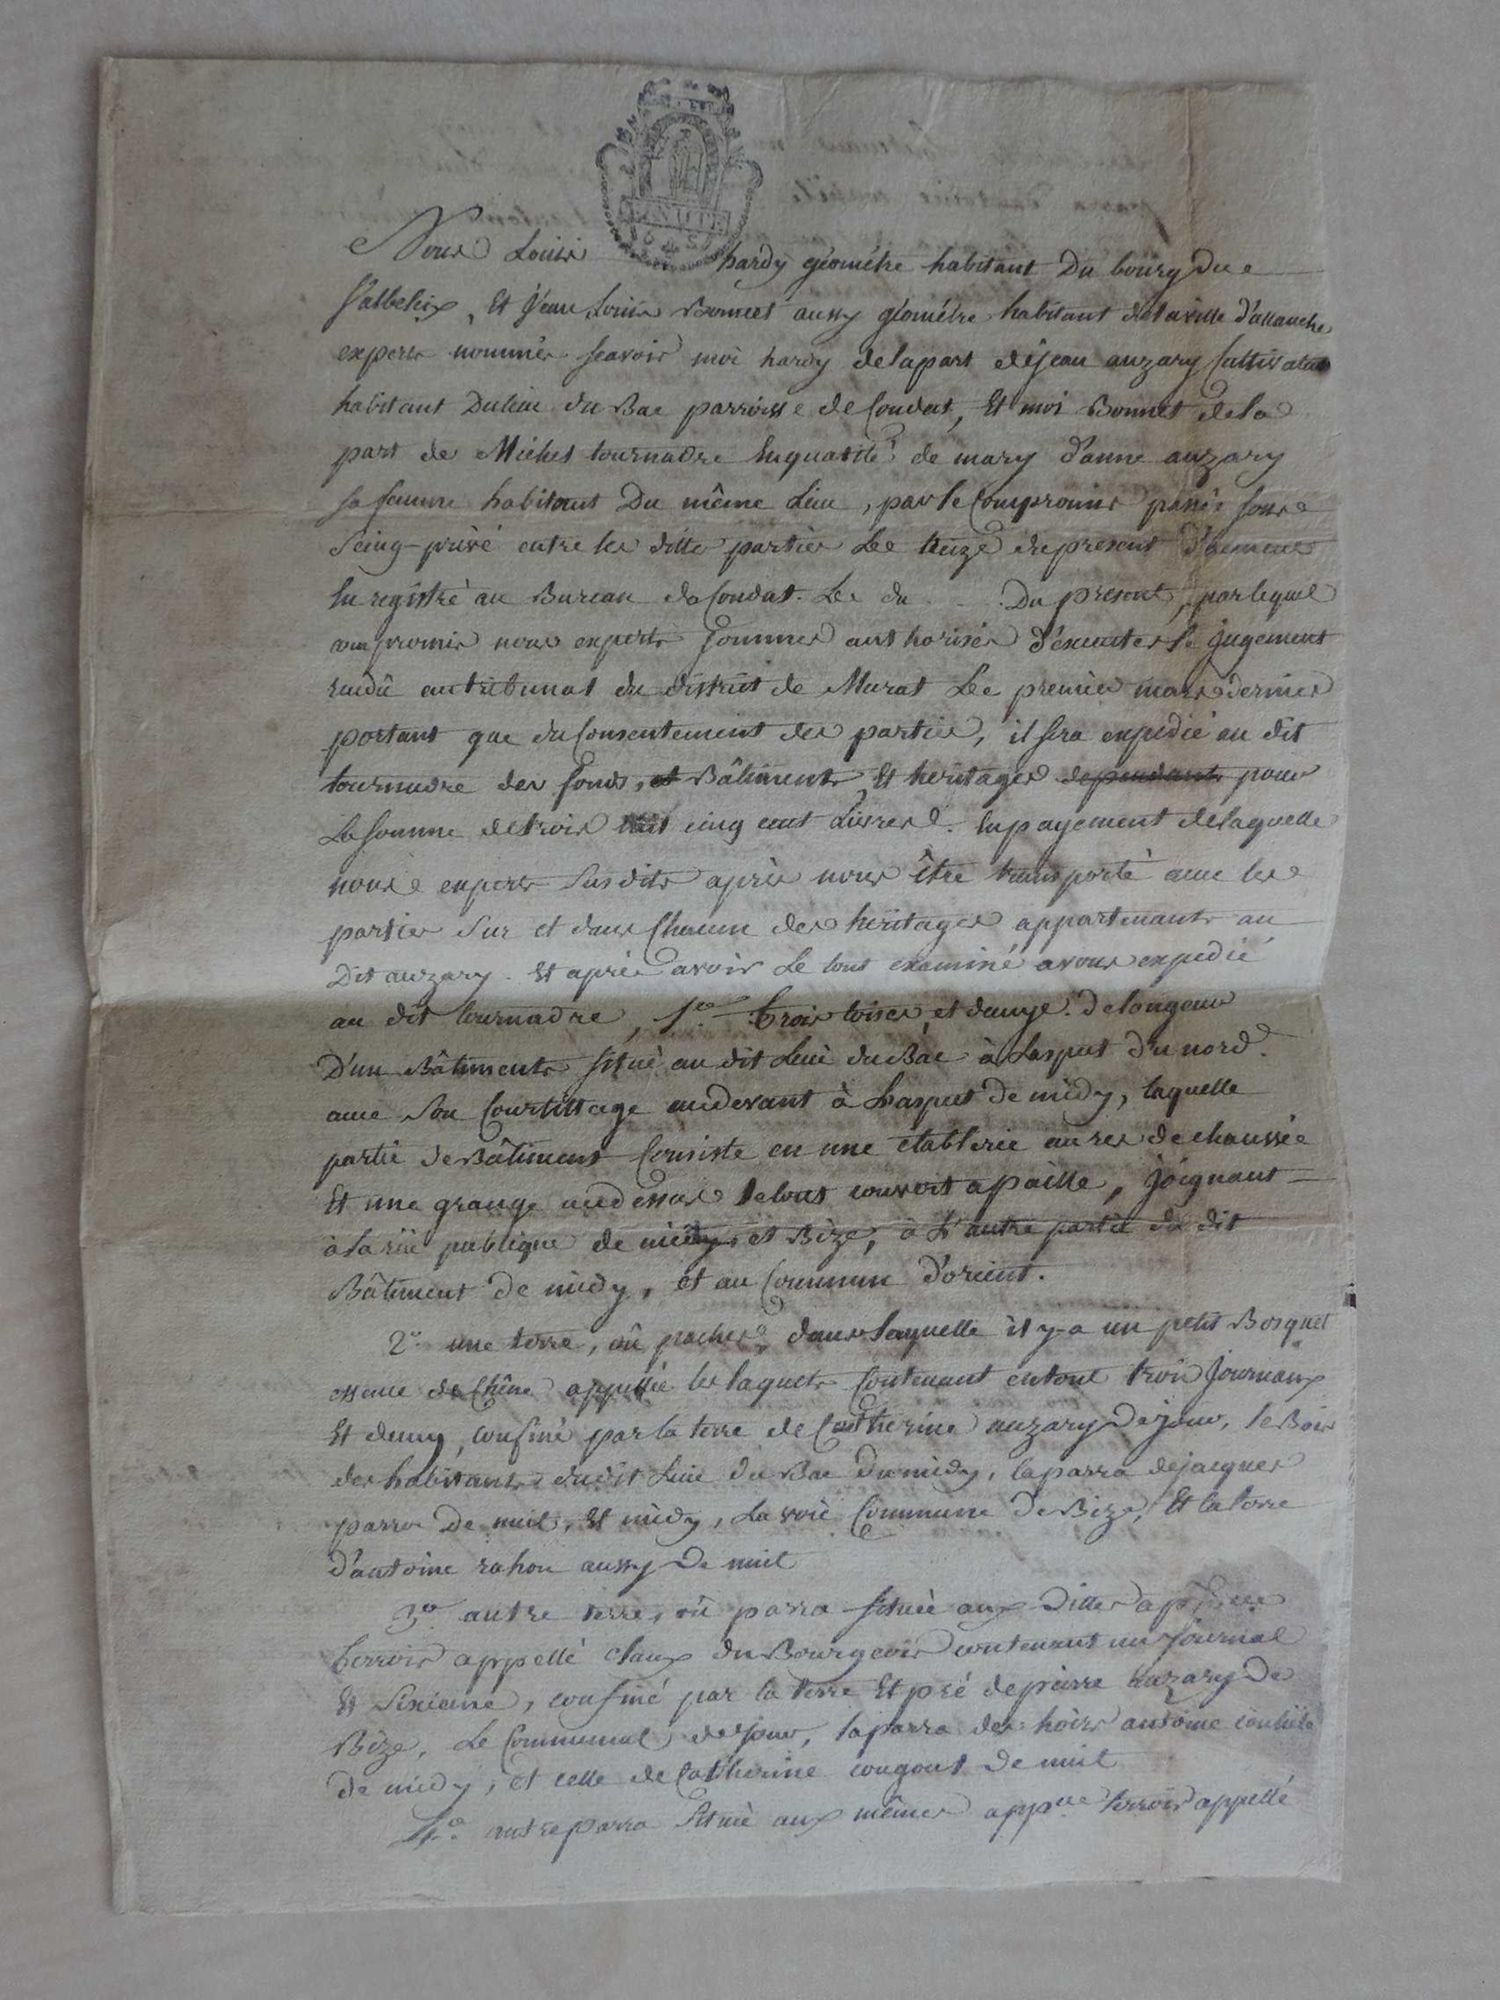 Nous Louis hardy géométre habitant Du bourg Du
Valbeleix, Et Jean Louis Bonnet aussy géométre habitant delaville d'allanche
experts nommés scavoir moi hardy delapart dejean auzary Cultivateur
habitant Dulieu du Bac parroisse de Condat, Et moi Bonnet dela
part de Michel tournadre Enqualité de mary d'anne auzary
sa femme habitant Du même Lieu, par le Compromis passé sous
Seing-privé entre les ditte parties Le treize dupresent duement
Enregistré au Bureau de Condat. Le du . . . Du present, parlequel
compromis nous experts sommes authorisés d'éxecuter le jugement
rendû au tribunal du district de Murat Le premier mars dernier
portant que du Consentement des parties, il sera expedié au dit
tournadre des fonds, et Bâtiments, Et heritages dependants pour
La Somme detrois cinq cent Livres. Enpayement delaquelle
nous experts Susdits après nous être transporté avec les
parties Sur et dans Chacun des heritages appartenants au
Dit auzary. Et après avoir Le tout examiné avons expedié
au dit tournadre, 1º. trois toises, et demye. De longeur
D'un Bâtiments situé au dit Lieu du Bac à Laspect du nord.
avec Son Courtillage audevant à Laspect de midy, laquelle
partie de Bâtiment Consiste en une établerie au res de chaussée
Et une grange audessus letout couvert apaille, joignant
à la rüe publique de midy, et Bize, à L'autre partie du dit
Bâtiment de midy, et au Commun d'orient.
2º une terre, où pacher, dans laquelle il y-a un petit Bosquet
essence de Chêne appellée les laquets Contenant entout trois journaux
Et demy, confiné par la terre de Catherine auzary De jour, le Bois
des habitants dudit Lieu du Bac Du midy, laparra dejacques
parra De nuit, Et midy, La voie Commune De Bize, Et la terre
d'antoine rahou aussy De nuit
3º autre terre, où parra située aux Dittes app.
terroir appellé claux du Bourgeois contenant un journal
Et Sixieme, confiné par la terre Et pré depierre auzary De
Bize, Le Communal de jour, laparra des hoirs antoine
De midy, et celle deCatherine cougout De nuit
4º. autre parra Située aux mêmes app terroir appellé